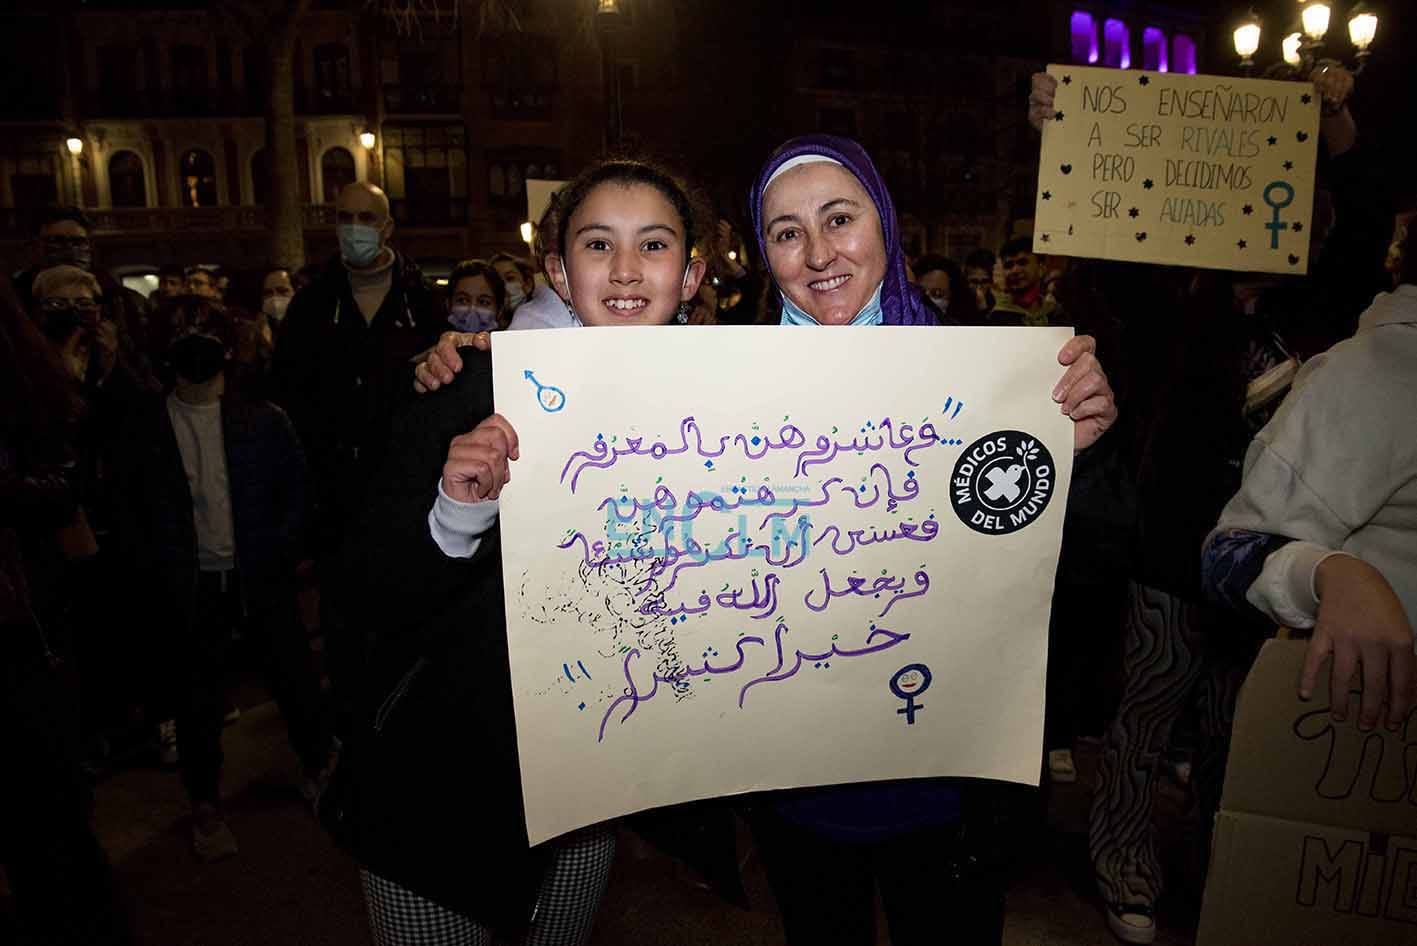 "...وَعَاشِرُوهُنَّ بِالْمَعْرُوفِ
فَإِنْ كَرِهْتُمُوهُنَّ
فَعَسَى أَنْ تَكْرَهُوا شَيْئًا
وَيَجْعَلَ اللَّهُ فِيهِ
خَيْرًا كَثِيرًا."
MÉDICOS
DEL MUNDO
NOS ENSEÑARON
A SER RIVALES
PERO DECIDIMOS
SER ALIADAS
ENCLM